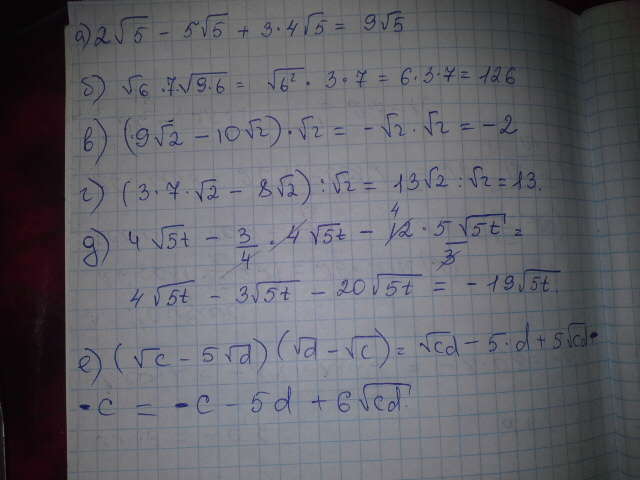 а) 2√5 - 5√5 + 3·4√5 = 9√5
б) √6 · 7√9·6 = √6² · 3·7 = 6·3·7 = 126
в) (9√2 - 10√2)·√2 = -√2·√2 = -2
г) (3·7·√2 - 8√2):√2 = 13√2:√2 = 13.
д) 4√5t - 3/4 · 4√5t - 12 4 · 5√5t/3 =
4√5t - 3√5t - 20√5t = -19√5t.
е) (√c - 5√d)(√d - √c) = √cd - 5·d + 5√cd -
- c = - c - 5d + 6√cd.